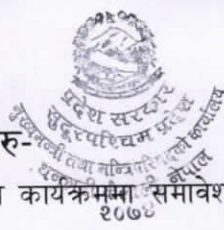 प्रदेश सरकार
सुदूरपश्चिम प्रदेश
मुख्यमन्त्री तथा मन्त्रिपरिषद्को कार्यालय
नेपाल
२०७४
रु-
कार्यक्रममा समावेश